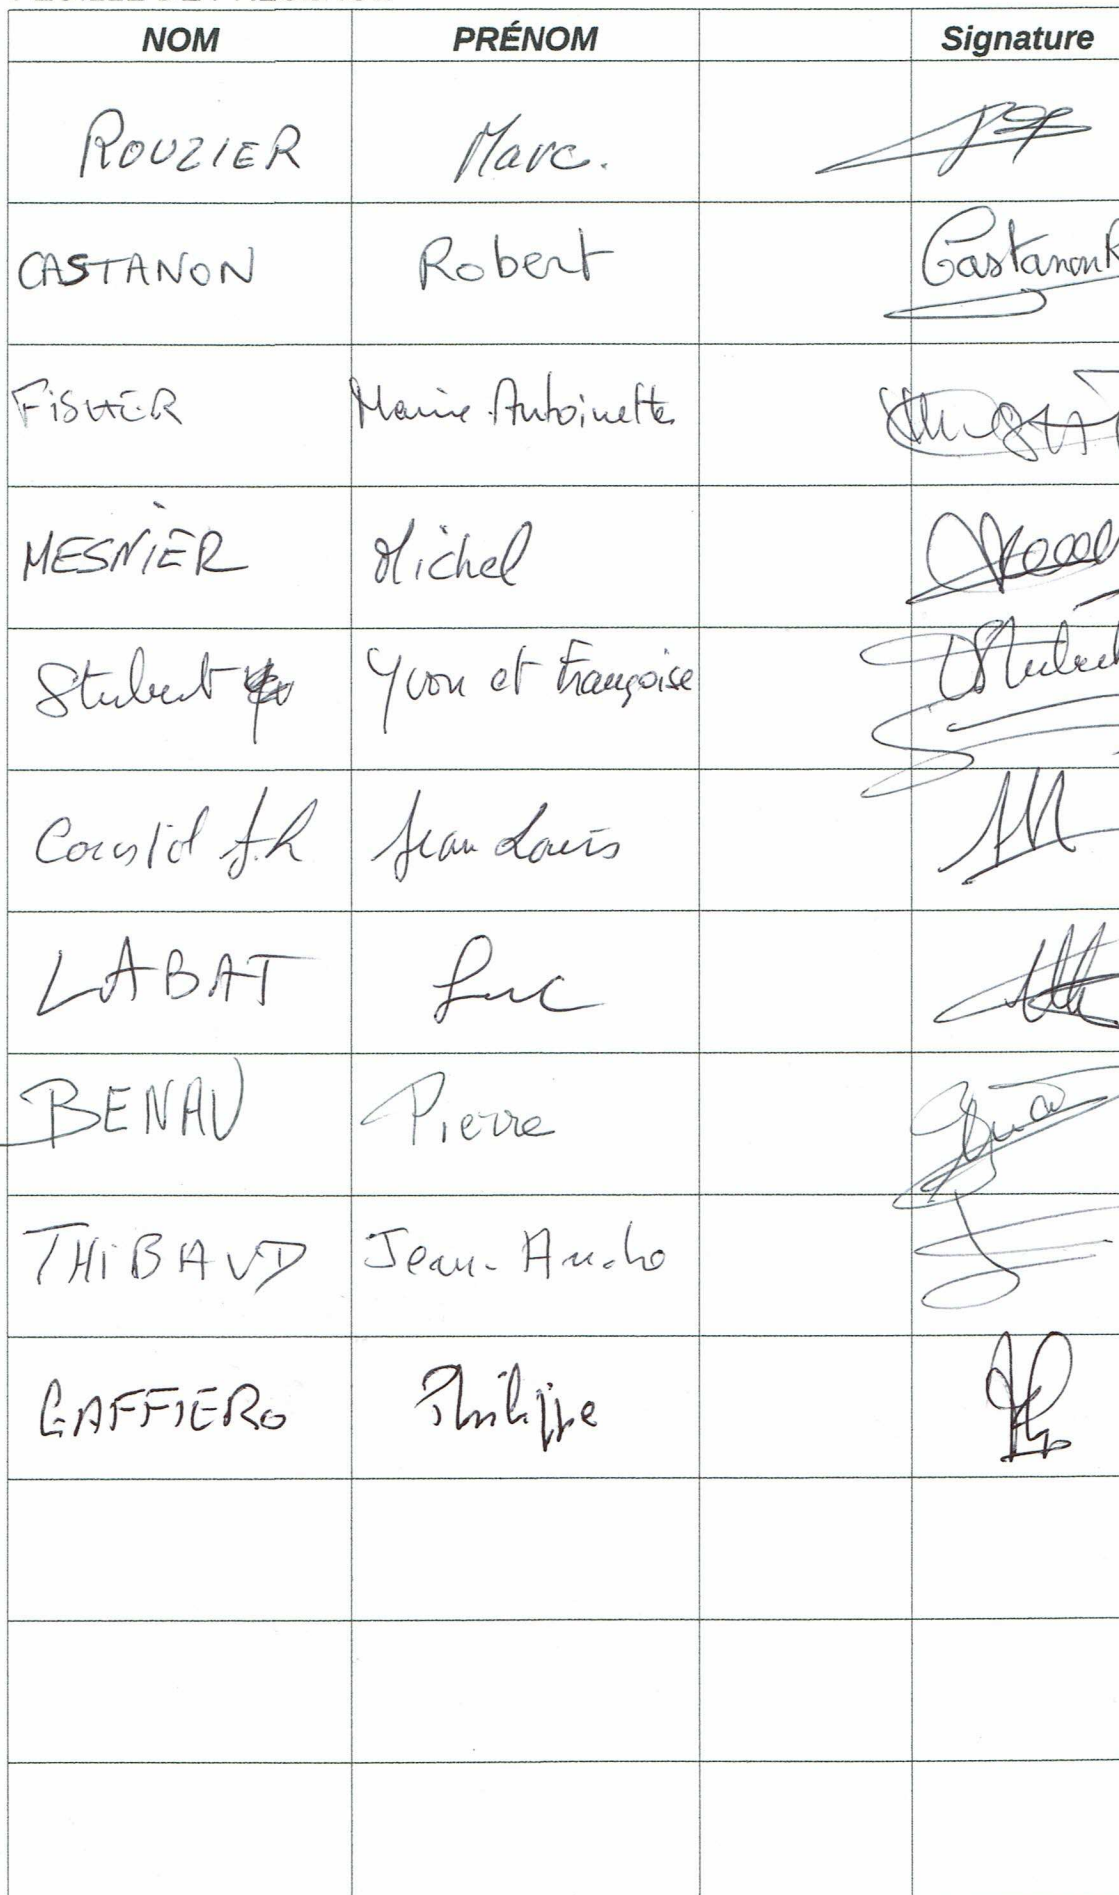 NOM PRÉNOM Signature
ROUZIER Marc.
CASTANON Robert Castanon R
FISHER Marie-Antoinette
MESNIER Michel
Stubert Yvon et Françoise Stubert
J.L Jean Louis
LABAT Luc
BENAU Pierre
THIBAUD Jean-
GAFFIERO Philippe